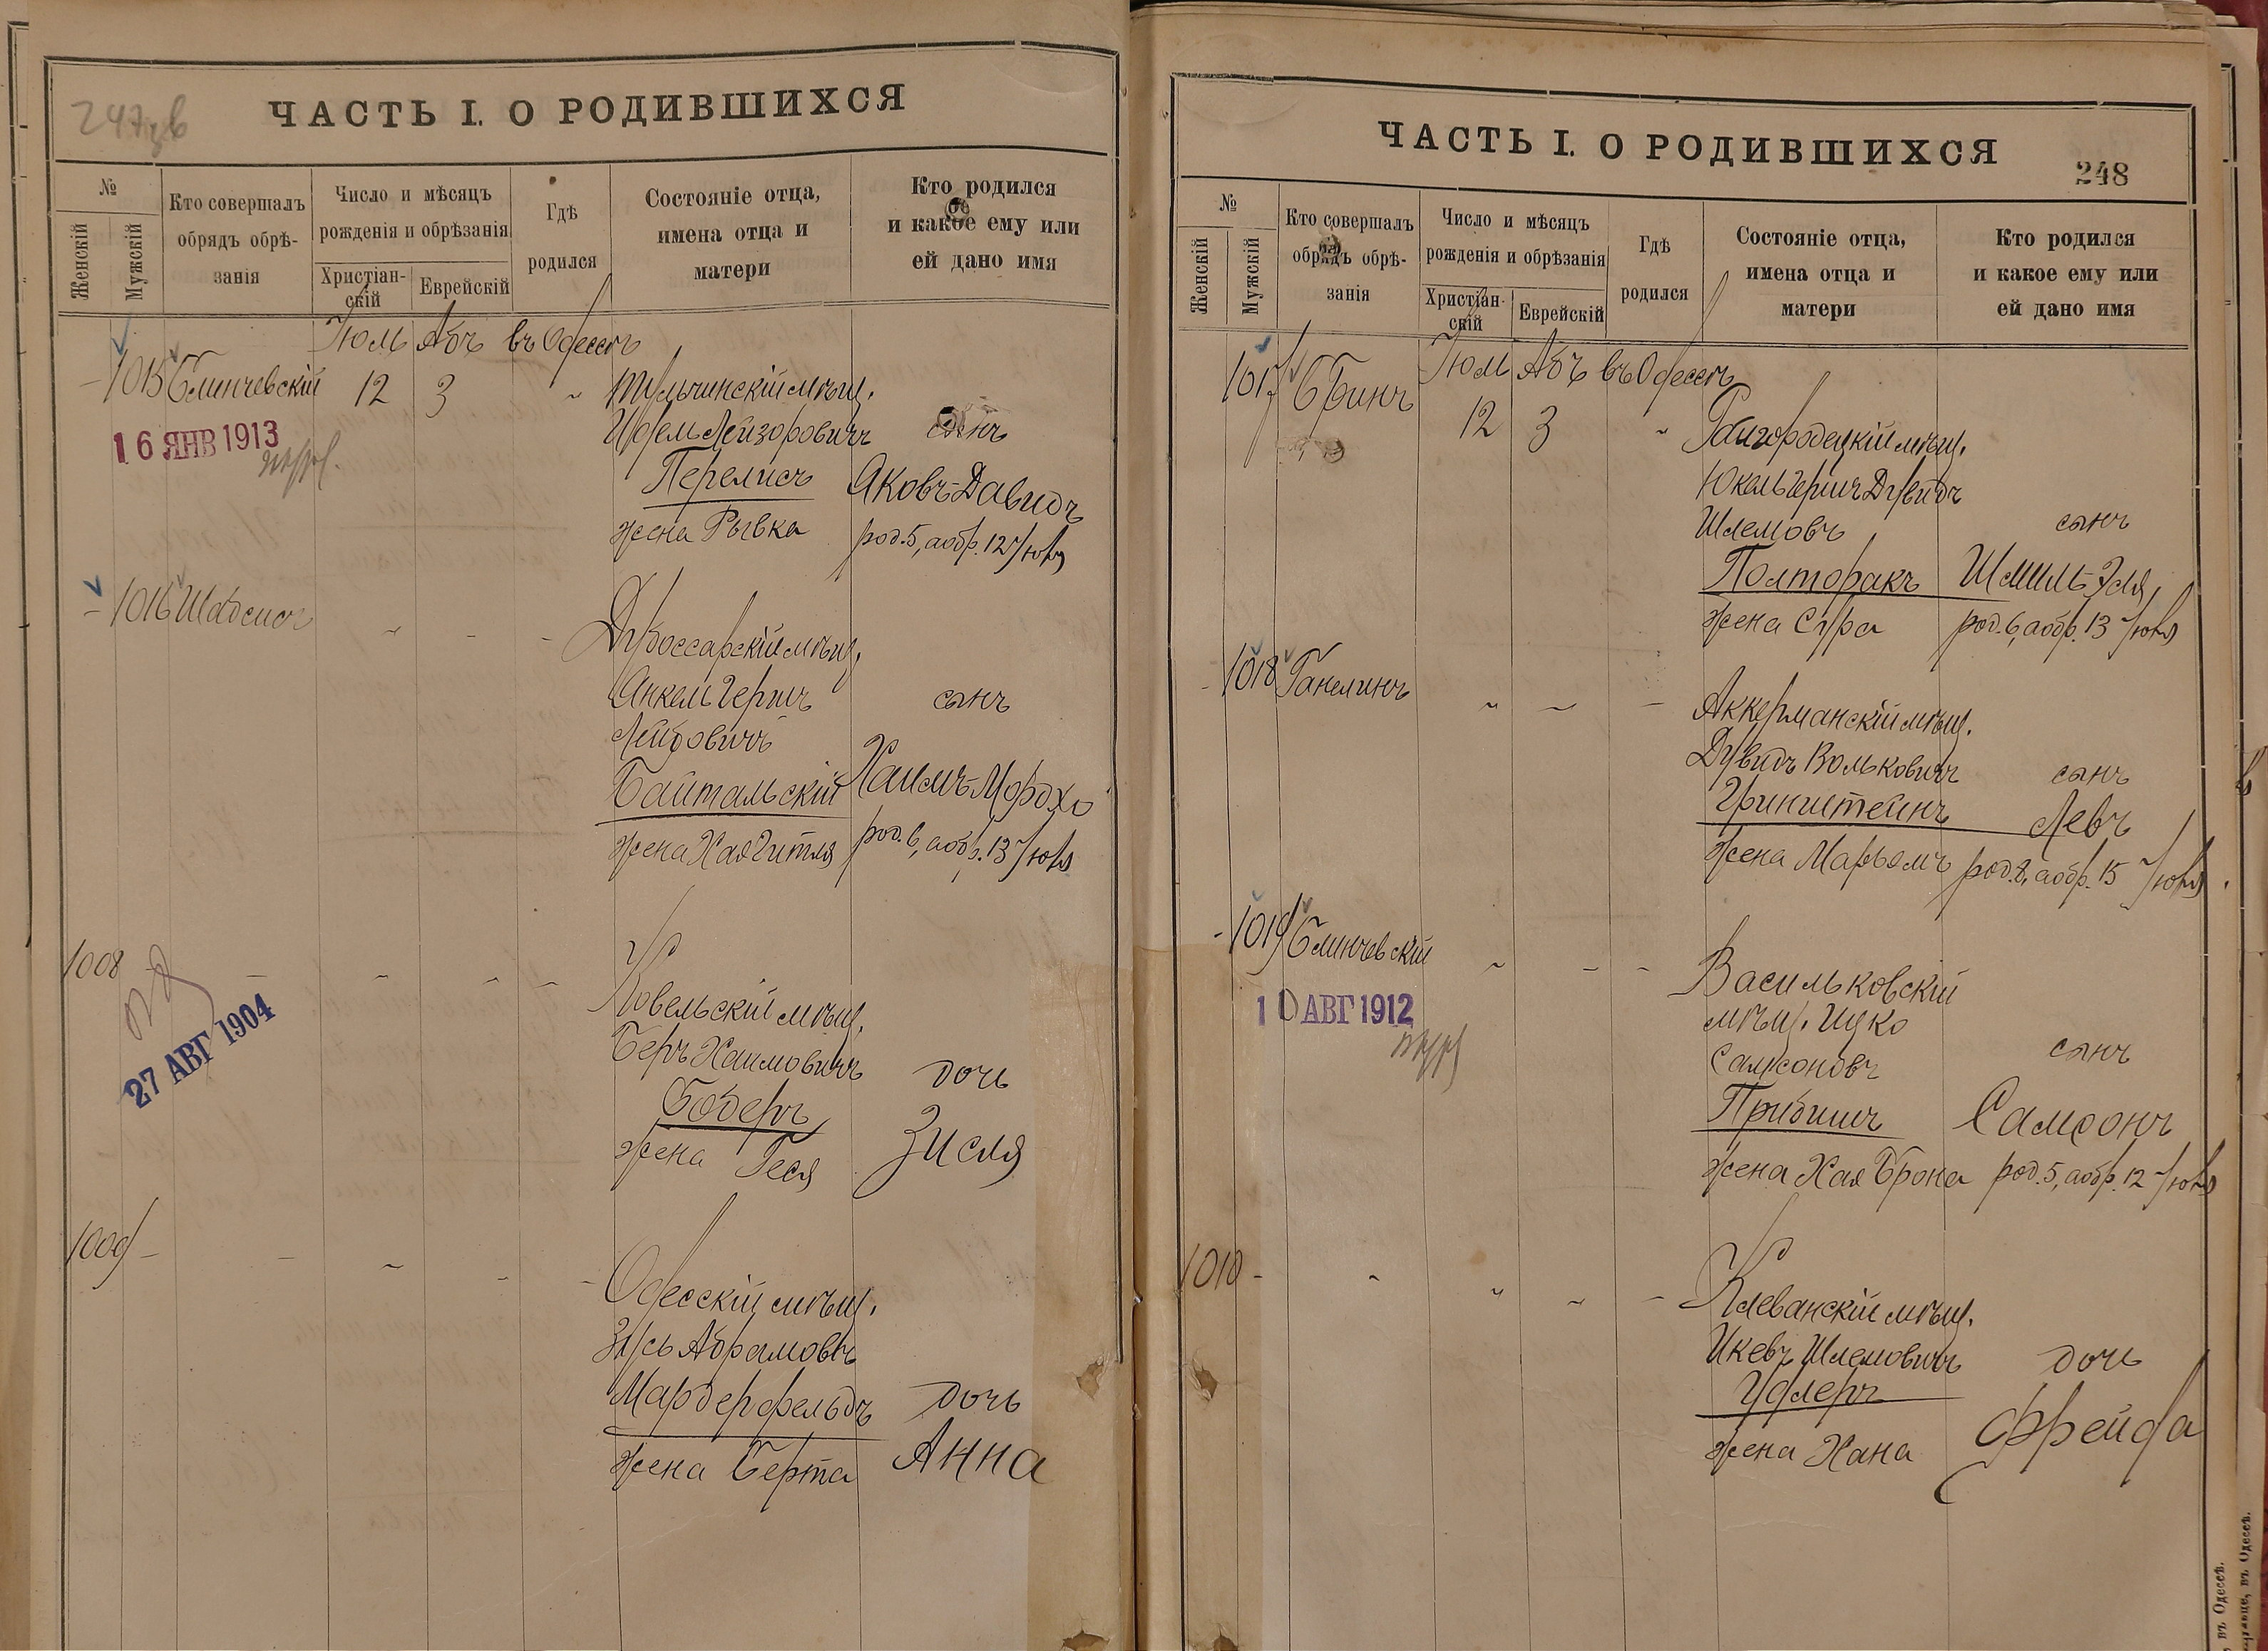 247 об
ЧАСТЬ I. О РОДИВШИХСЯ
№
Женскій
Мужскій
Кто совершалъ обрядъ обрѣ-
занія
Число и мѣсяцъ
рожденія и обрѣзанія
Христіан-
скій
Еврейскій
Гдѣ
родился
Состояніе отца,
имена отца и
матери
Кто родился
и какое ему или
ей дано имя
Іюль Абъ въ Одессѣ
1015 Блинчевскій 12 3 Тульчинскій мѣщ.
16 ЯНВ 1913
Идель Лейзоровичъ сынъ
Перелисъ Яковъ-Давидъ
жена Рывка род. 5, а обр. 12 Іюля
1016 Шабсисъ
Дубоссарскій мѣщ.
Анкель Гершъ сынъ
Лейбовичъ
Байтальскій Хаимъ-Мордхо
жена Хая Гитля род. 6, а обр. 13 Іюля
1008
27 АВГ 1904
Ковельскій мѣщ.
Беръ Хаимовичъ дочь
Боберъ Зисля
жена Геся
1009
Одесскій мѣщ.
Зусь Абрамовъ
Мардерфельдъ дочь
жена Берта Анна
ЧАСТЬ I. О РОДИВШИХСЯ
248
№
Женскій
Мужскій
Кто совершалъ
обрядъ обрѣ-
занія
Число и мѣсяцъ
рожденія и обрѣзанія
Христіан-
скій
Еврейскій
Гдѣ
родился
Состояніе отца,
имена отца и
матери
Кто родился
и какое ему или
ей дано имя
Іюль Абъ въ Одессѣ
1017 Бинъ 12 3
Райгородецкій мѣщ.
Юкель Гершъ Дувидъ
Шлемовъ сынъ
Полторакъ Шмиль-Эля,
жена Сура род. 6, а обр. 13 Іюля
1018 Ганелинъ
Аккерманскій мѣщ.
Дувидъ Вольковичъ сынъ
Гринштейнъ Левъ
жена Марьямъ род. 8, а обр. 15 Іюля
1019 Блинчевскій
10 АВГ 1912
Васильковскій
мѣщ. Ицко
Самсоновъ сынъ
Прибишъ Самсонъ
жена Хая Брона род. 5, а обр. 12 Іюля
1010
Клеванскій мѣщ.
Икевъ Шлемовичъ дочь
Удлеръ Фрейда
жена Хана
въ Одессѣ.
въ Одессѣ.